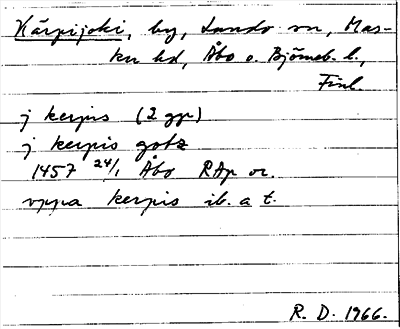 Kärpijoki, by, Lundo sn, Mas-
ku hd, Åbo o. Björneb. l.,
Finl.
j kerpis (2 ggr)
j kerpis gotz
1457 24/1 Åbo RAp or.
vppa kerpis ib. a t.
R. D. 1966.